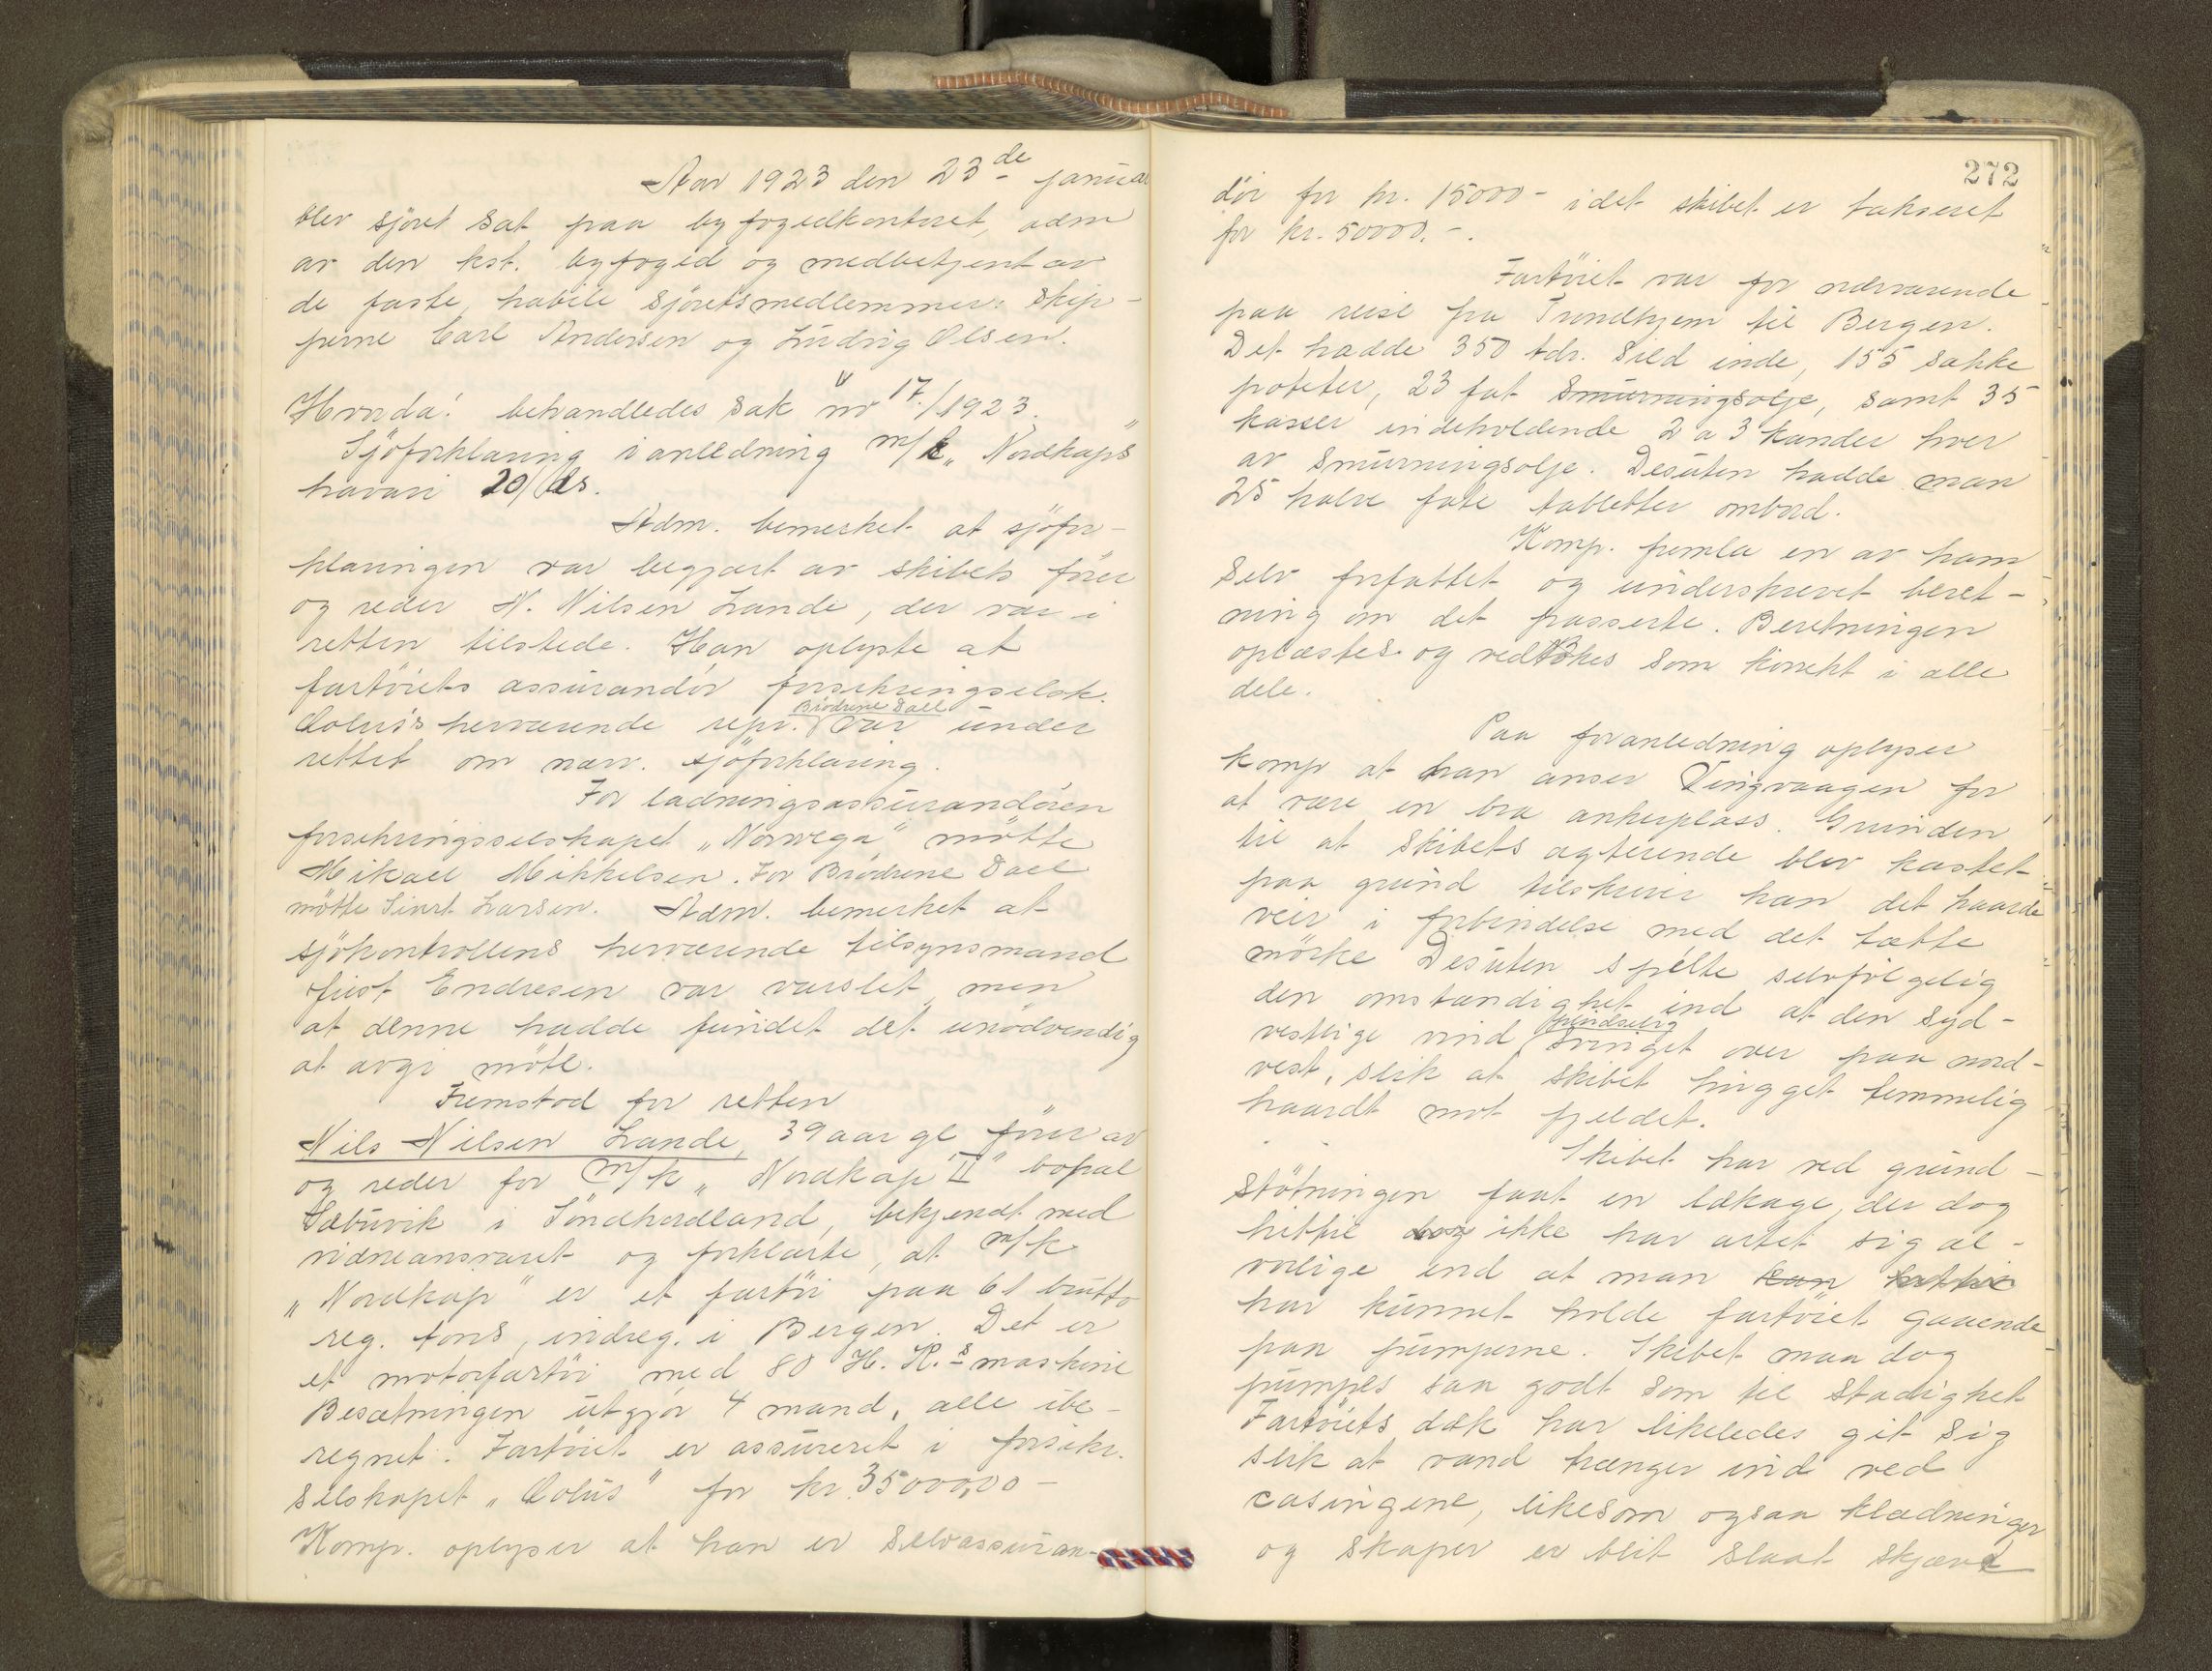 Aar 1923 den 23de januar
blev sjöret sat paa byfogedkontoret, adm
av den kst. byfoged og medbetjent av
de faste, habile sjöretsmedlemmer: Skip-
perne Carl Andersen og Ludvig Olsen.
Hvorda: behandledes sak nr 17/1923.
Sjöforklaring i anledning m/k „Nordkaps"
havari 20/ ds.
Adm. bemerket at sjöfor-
klaringen var begjært av skibets förer
og reder N. Nilsen Lande, der var i
retten tilstede. Han oplyste at
fartöiets assurandör forsikringselsk.
Æolus's herværende repr. Brödrene Dall var under
rettet om nærv. sjöforklaring.
For ladningsassurandören
forsikringsselskapet „Norvega" mötte
Mikael Mikkelsen. For Brödrene Dall
mötte Sivert Larsen. Adm. bemerket at
sjökontrollens herværende tilsynsmand
Endresen var varslet, men
at denne hadde fundet det unödvendig
at avgi möte.
Fremstod for retten
Nils Nilsen Lande, 39 aar gl förer av
og reder for m/k „Nordkap II" bopæl
Sæbuvik i Söndhordland, bekjendt med
vidneansvaret og forklarte, at m/k
„Nordkap" er et fartöi paa 61 brutto
reg. tons, indreg. i Bergen. Det er
et motorfartöi med 80 H. K.s maskine
Besætningen utgjör 4 mand, alle ibe-
regnet. Fartöiet er assureret i forsikr.
selskapet „Æolus" for kr. 35000,00-
Komp. oplyser at han er selvassuran-
272
dör for kr. 15000- idet skibet er takseret
for kr. 50000.-.
Fartöiet var for nærværende
paa reise fra Trondhjem til Bergen.
Det hadde 350 tdr. sild inde, 155 sække
poteter, 23 fat smurningsolje, samt 35
kasser indeholdende 2 a 3 kander hver
av smurningsolje. Desuten hadde man
25 halve fate tabletter ombord.
Komp. fremla en av ham
selv forfattet og underskrevet beret-
ning om det passerte. Beretningen
oplæstes og vedtokes som korrekt i alle
dele.
Paa foranledning oplyser
komp at han anser Tingvaagen for
at være en bra ankerplass. Grunden
til at skibets agterende blev kastet
paa grund tilskriver han det haarde
veir i forbindelse med det tætte
mörke Desuten spilte selvfölgelig
den omstændighet ind at den syd-
vestlige vind svinget over paa nord-
vest, slik at skibet hugget temmelig
haardt mot fjeldet.
Skibet har ved grund-
stötningen faat en lækage, der dog
hittil dog ikke har artet sig al-
vorlige end at man kan hittil
har kunnet holde fartöiet gaaende
paa pumperne. Skibet maa dog
pumpes saa godt som til stadighet
Fartöiets dæk har likeledes git sig
slik at vand trænger ind ved
casingene, likesom ogsaa klædninger
og skaper er blit slaat skjæve